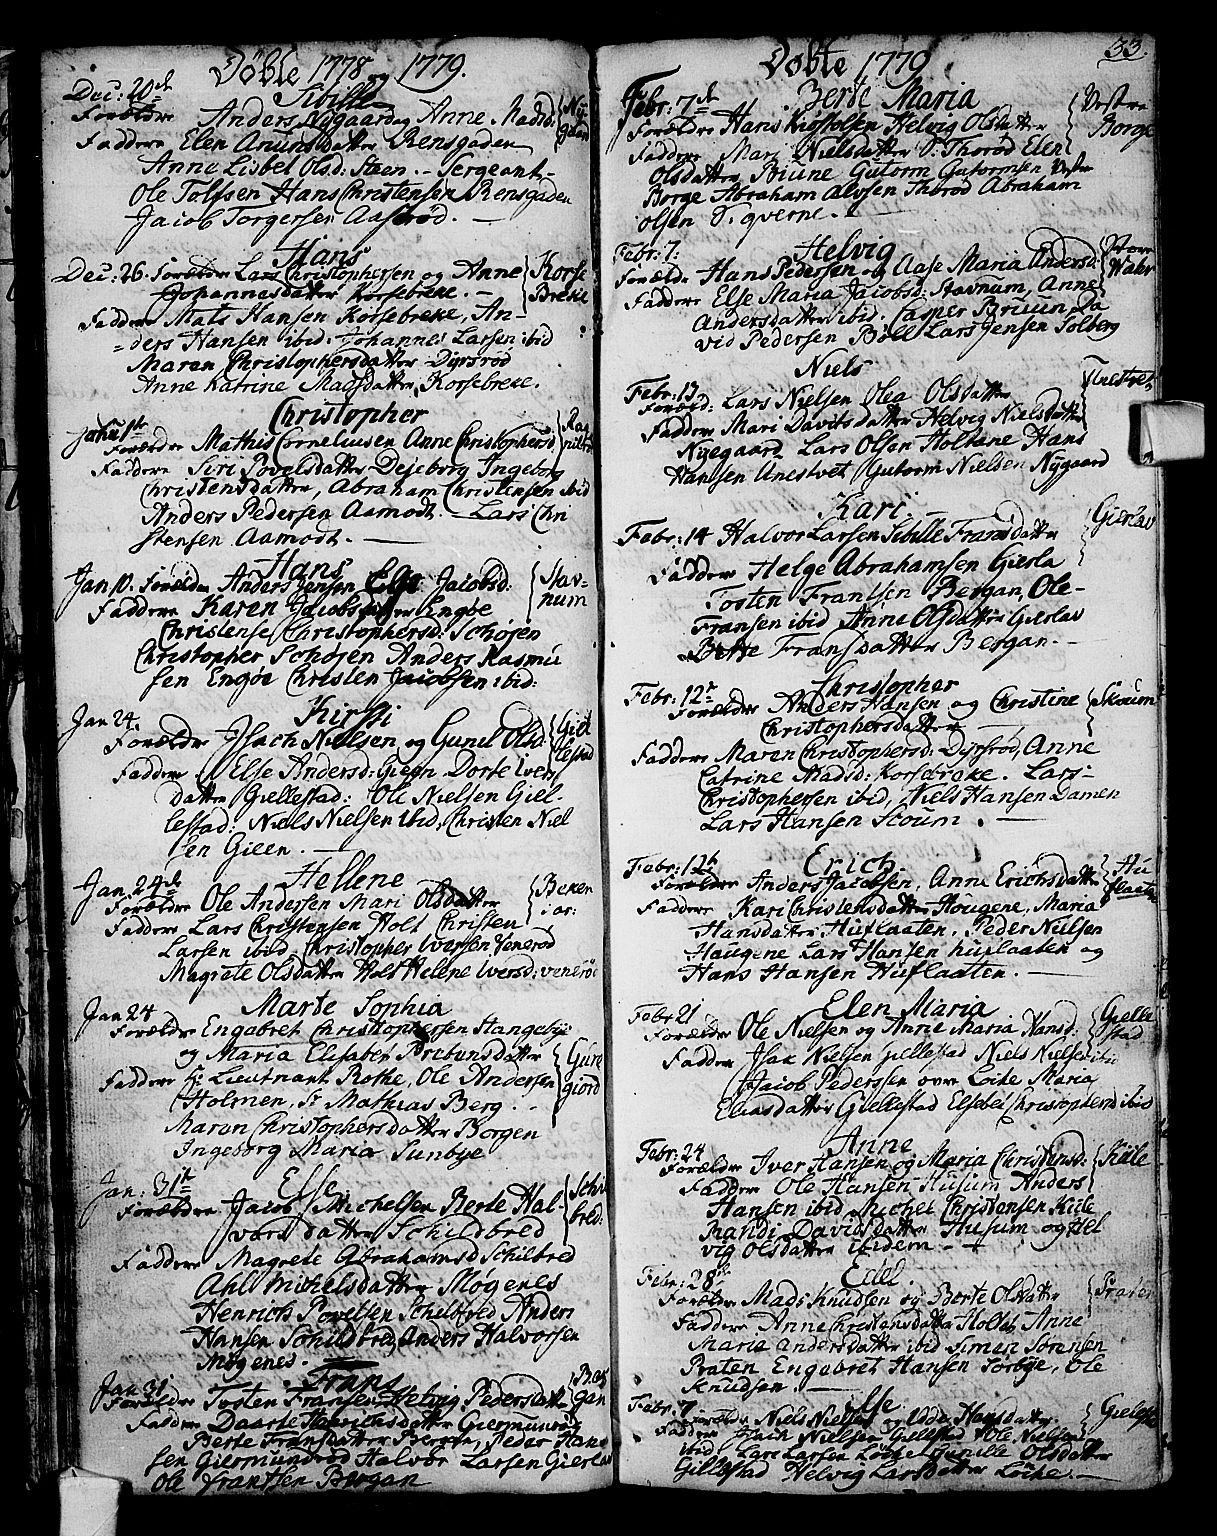 Döbte 1778 og 1779.
Dec: 20de Sibille
Forældre Anders Nygaard og Anne Madsd: Nygaard
Faddere Elen Amundsdatter Rensgaden
Anne Lisbel Olsd: Steen. - Sergeant
Ole Tolfsen Hans Christensen Rensgaden
Jacob Torgersen Aasrød. -
Hans
Dec: 26. Forældre Lars Christophersen og Anne Korse
Johannesdatter Korsebreke. - Brekie
Faddere Mats Hansen Korsebreke, An-
ders Hansen ibid: Johannes Larsen ibid
Maren Christophersdatter Dyrsrød
Anne Katrine Madsdatter Korsebreke.
Christopher
Janu 1ste
Forældre Mathis Corneliusen Anne Christophersd:
Faddere Siri Povelsdatter Dejeborg Ingeborg
Christensdatter, Abraham Christensen ibid
Anders Pedersen Aamodt. - Lars Chri
stensen Aamodt. -
Hans
Jan 10. Forældre Anders Jensen Else Jacobsd: Stav-
Faddere Karen Jacobsdatter Engøe num
Christense Christophersd: Schöjen
Christopher Schöjen Anders Rasmu
sen Engöe Christen Jacobsen ibid:
Jan 24. Kirsti
Forældre Isach Nielsen og Gunel Olsd: Giel
Faddere Else Andersd: Gieen Dorte Ivers lestad
datter Giellestad: Ole Nielsen Giel-
lestad: Niels Nielsen ibid, Christen Niel
sen Gieen. -
Jan. 24de Hellene
Forældre Ole Andersen Mari Olsdatter
Faddere Lars Christensen Holt Christen
Larsen ibid Christopher Iversen Venerød
Magrete Olsdatter Holt Helene Iversd: venerød
Jan 24 Marte Sophia
Forældre Engebret Christophersen Hangebye
og Maria Elisabet Prebensdatter
Faddere Hr Lieutnant Rothe, Ole Andersen giord
Holmen, Sr Mathias Berg. -
Maren Christophersdatter Borgen
Ingeborg Maria Sunbye
Jan: 31te Else
Forældre Jacob Michelsen Berte Hal- Schil
vorsdatter Schilbred bred:
Faddere Magrete Abrahamsd Schilbred
Ahle Michelsdatter Møgenes
Henrich Povelsen Schilbred Anders
Hansen Schildbred, Anders Halvorsen
Møgenes. -
Jan 31 Frans
Forældre Tosten Fransen Helvig Pedersdatter Ber
Faddere Daarte Henrichsdatter Giermundrød gan
Berte Fransdatter Bergan, Peder Hans
sen Giermundrød Halvor Larsen Gierlau
Ole Frantsen Bergan
Döbte 1779 33.
Febr: 7de Berte Maria
Forældre Hans Kiøstolsen Helvig Olsdatter Vestre
Faddere Mari Nielsdatter O: Thorød Elen Borge
Olsdatter Biune Gutorm Gutormsen Vestre
Borge Abraham Alvsen Thorød Abraham
Olsen T. qverne. -
Febr: 7: Helvig
Foræld: Hans Pedersen og Aase Maria Andersd:
Faddere Else Maria Jacobsd: Stavnum, Anne
Andersdatter ibid. Casper Bruun, Da
vid Pedersen Böle Lars Jensen Solberg
Niels
Febr: 13
Foræld: Lars Nielsen Olea Olsdatter Unestvet
Faddere Mari Davitsdatter Helvig Nielsdatter
Nyegaard Lars Olsen Holtane Hans
Hansen Unestvet Gutorm Nielsen Nygaard
Kari.
Febr: 14 Halvor Larsen Sibille Fransdatter Gierlav
Faddere Helge Abrahamsen Gierla
Tosten Frantsen Bergan, Ole-
Fransen ibid Anne Olsdatter Gierlav
Berte Fransdatter Bergan. -
Christopher
Febr: 12te
Forældre Anders Hansen og Christine Skoum
Christophersdatter
Faddere Maren Christophersd: Dyrsrød, Anne
Catrine Madsd: Korsebreke. Lars-
Christophersen ibid, Niels Hansen Damen
Lars Hansen Scoum. -
Febr: 12te Erich
Forældre Anders Jacobsen, Anne Erichsdatter Hu
Faddere Kari Christensdatter Hougene, Maria flaaten
Hansdatter Huflaaten, Peder Nielsen
Haugene Lars Hansen huflaaten og
Hans Hansen Huflaaten. -
Febr 21 Elen Maria
Forældre Ole Nielsen og Anne Maria Hansd: Gielle
Faddere Isak Nielsen Gellestad Niels Nielsen ibid stad
Jacob Pederssen over Loike Maria
Eliasdatter Giellestad Elsebet Christophersd ibid
Anne
Febr: 24
Forældre Iver Hansen og Maria Christensd: Kiile
Faddere Ole Hansen Husum Anders
Hansen ibid Michel Christensen Kiile
Randi Davidsdatter Husum og Hel
vig Olsdatter ibidem. -
Febr: 28de Edel
Forældre Mads Knudsen og Berte Olsdatter Praten
Faddere Anne Christensdatter Holtet Anne
Maria Andersdatter ibid Simen Sörensen
Praten Engebret Hansen Sorbye, Ole
Knudsen. -
Febr: 7 Else.
Forældre Niels Nielsen og Edda Hansdatter.
Faddere Isach Nielsen Gellestad Ole Nielsen
ibid Lars Larsen Löcke Gunille Olsdatter
Gillestad Helvig Larsdatter Loike. -